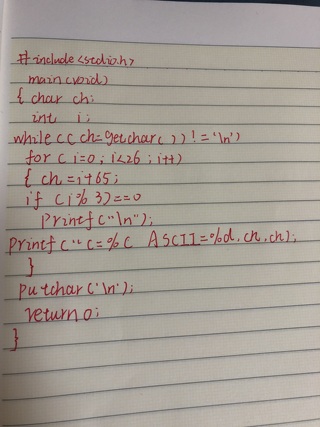 # include <stdio.h>
main(void)
{ char ch;
int i;
while ((ch=getchar())!='\n')
for (i=0; i<26; i++)
{ ch=i+65;
if (i%3)==0
printf("\n");
printf("C=%C ASCII=%d.ch,ch);
}
putchar('\n');
return 0;
}